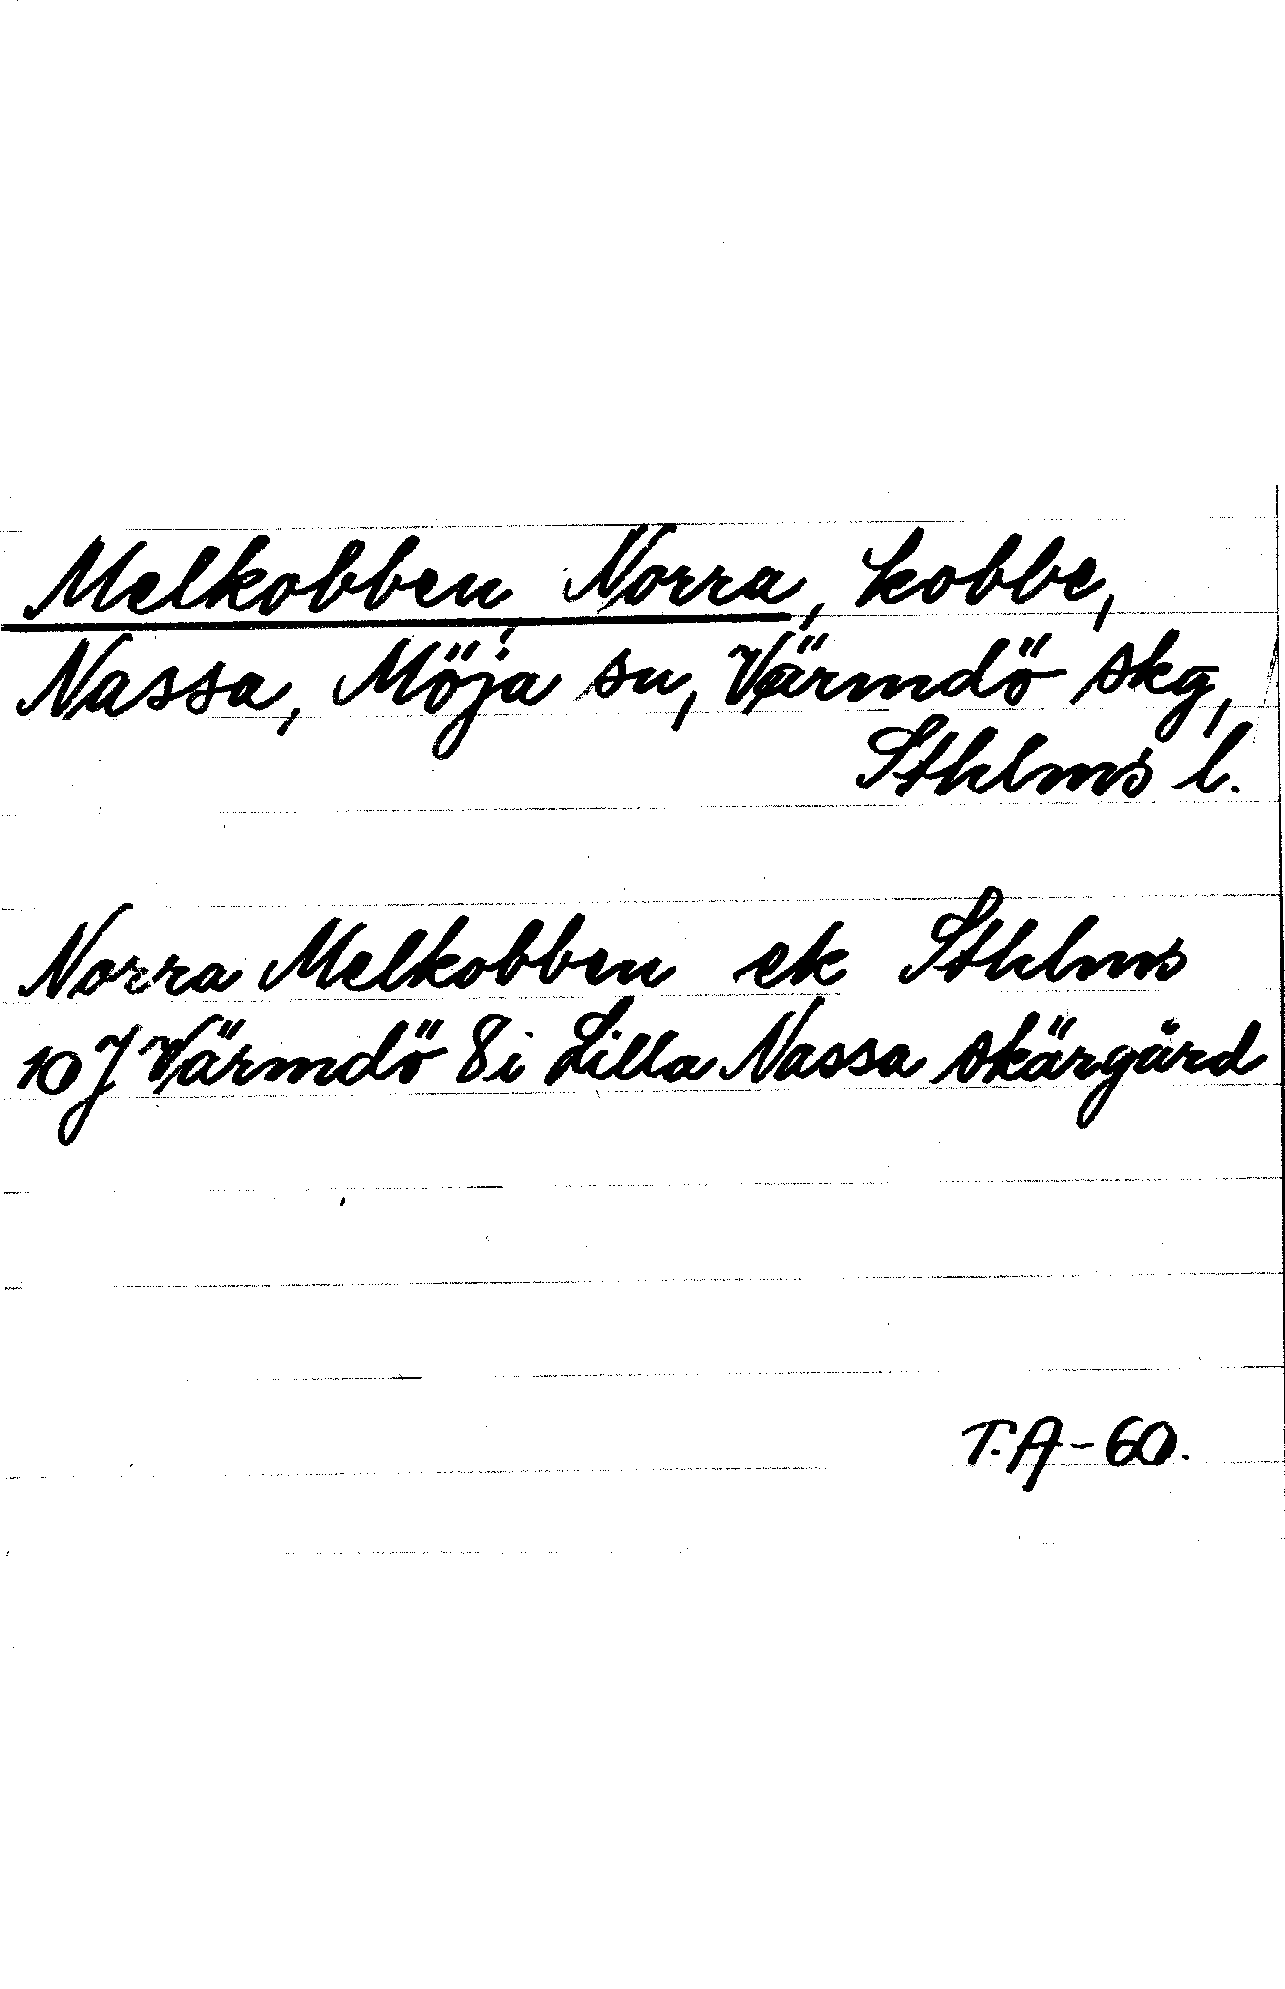 Melkobben, Norra, kobbe,
Nassa, Möja sn, Värmdö skg,
Sthlms l.
Norra Melkobben ek Sthlms
10 J Värmdö 8i Lilla Nassa skärgård
T.A-60.